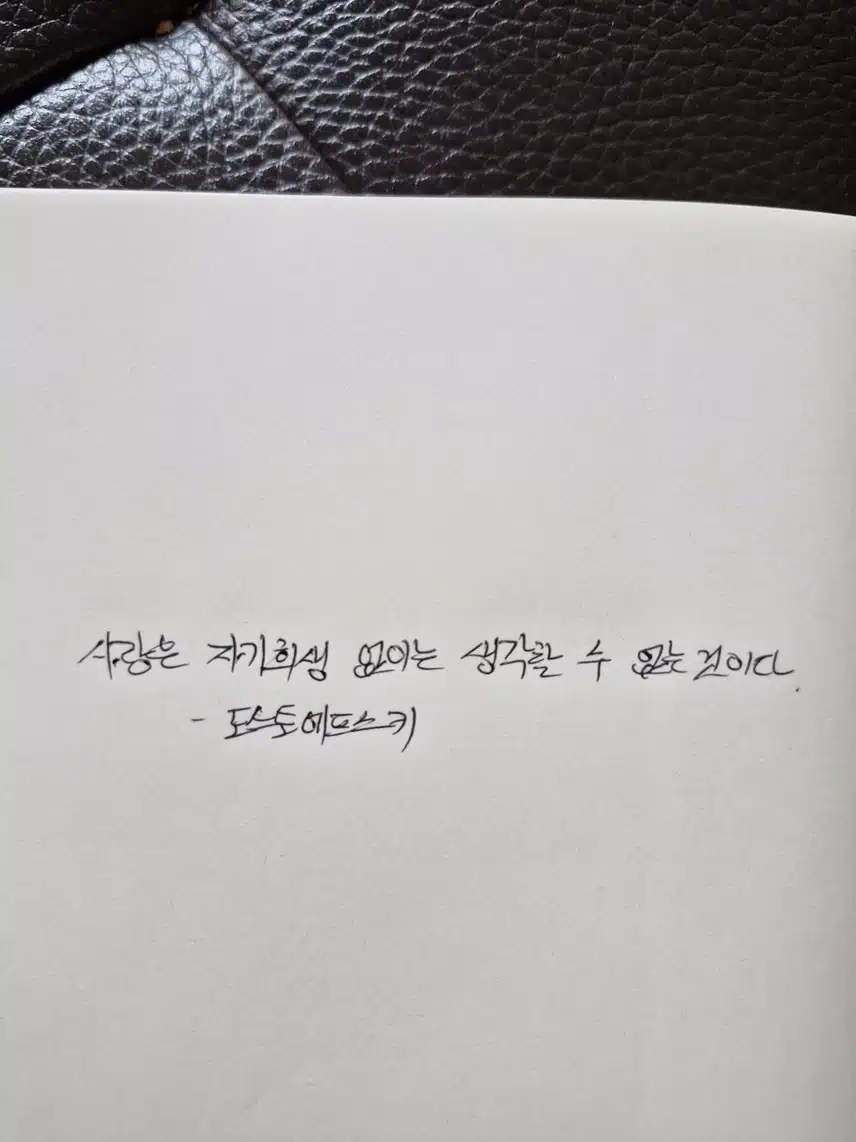 사랑은 자기희생 없이는 생각할 수 없는 것이다.
- 도스토예프스키